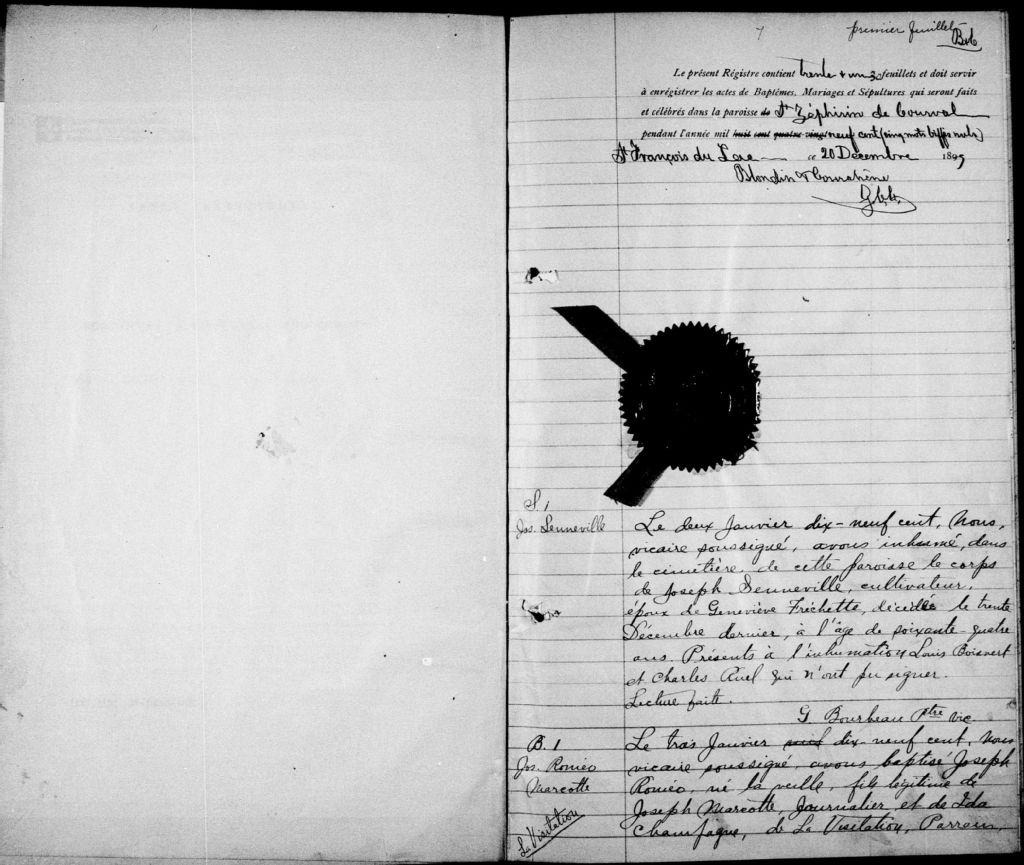 premier feuillet
Le présent Régistre contient trente & un feuillets et doit servir
à enrégistrer les actes de Baptêmes, Mariages et Sépultures qui seront faits
et célébrés dans la paroisse de St Zéphirin de Courval
pendant l'année mil huit cent quatre-vingt neuf cent (cinq mots biffés nuls)
St François du Lac ce 20 Décembre 1899
Blondin &
S. 1
Jos. Senneville
Le deux Janvier dix-neuf cent, Nous,
vicaire soussigné, avons inhumé, dans
le cimetière de cette paroisse le corps
de Joseph Senneville, cultivateur,
époux de Geneviève Fréchette, décédée le trente
Décembre dernier, à l'âge de soixante-quatre
ans. Présents à l'inhumation Louis Boisvert
et Charles Ruel qui n'ont pu signer.
Lecture faite.
G. Bourbeau Ptre vic
B. 1
Jos. Roméo
Marcotte
La Visitation
Le trois Janvier dix-neuf cent, Nous
vicaire soussigné, avons baptisé Joseph
Roméo, né la veille, fils légitime de
Joseph Marcotte, Journalier et de Ida
Champagne, de La Visitation, Parrain,